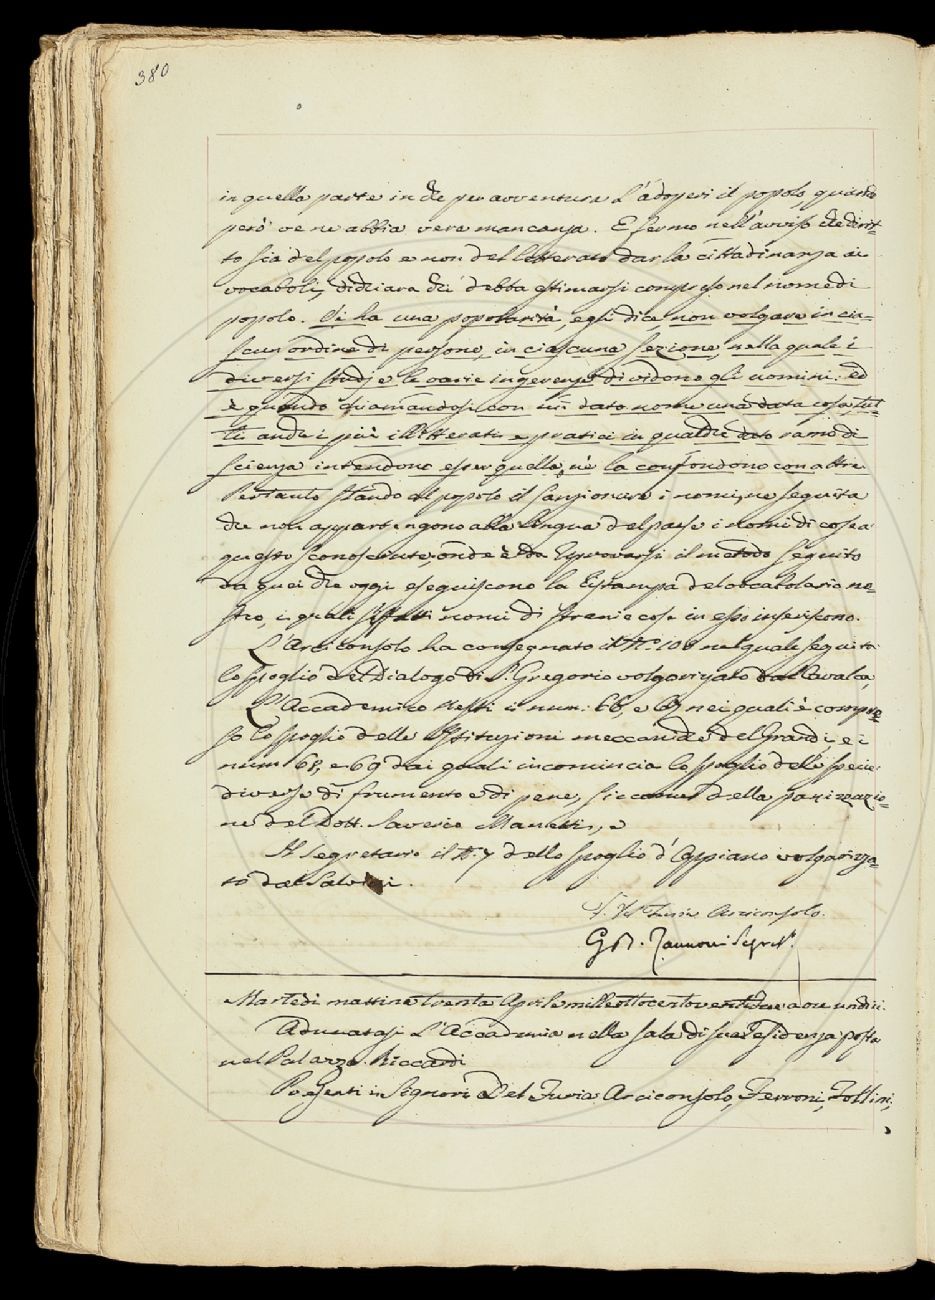 380
in quella parte in che per avventura l'adoperi il popolo, quando
però ve ne abbia vera mancanza. E fermo nell'avviso che dirit=
to sia del popolo e non del letterato dar la cittadinanza ai
vocaboli, dichiara chi debba estimarsi compreso nel nome di
popolo. Vi ha una popolarità, egli dice, non volgare in cia=
scun ordine di persone, in ciascuna sezione, nella quale i
diversi studj e le varie ingerenze dividono gli uomini: ed
è quando chiamandosi con un dato nome una data cosa, tut=
ti anche i più illitterati e pratici in qualche dato ramo di
scienza intendono esser quella, nè la confondono con altre.
Pertanto stando al popolo il sanzionare i nomi, ne seguita
che non appartengono alla lingua del paese i nomi di cose a
questo sconosciute, onde è da riprovarsi il metodo seguito
da quei che oggi eseguiscono la ristampa del vocabolario no=
stro, i quali siffatti nomi di straniere cose in esso inseriscono.
L'Arciconsolo ha consegnato il N.º 100 nel quale seguita
lo spoglio del Dialogo di S. Gregorio volgarizzato dal Cavalca,
L'Accademico Nesti i num. 66, e 67 nei quali è compre=
so lo spoglio delle Istituzioni meccaniche del Grandi, e i
num. 68, e 69 dai quali incomincia lo spoglio delle specie
diverse di frumento e di pane, siccome della panizzazio=
ne del Dott. Saverio Manetti, e
Il Segretario il N. 7 dello spoglio d'Appiano volgarizza=
to dal Salvini.
F. Del Furia Arciconsolo.
G. B. Zannoni Segret.º
Martedì mattina trenta Aprile milleottocentoventidue a ore undici.
Adunatasi l'Accademia nella sala di sua residenza posta
nel Palazzo Riccardi
Presenti i Signori Del Furia Arciconsolo, Ferroni, Follini,